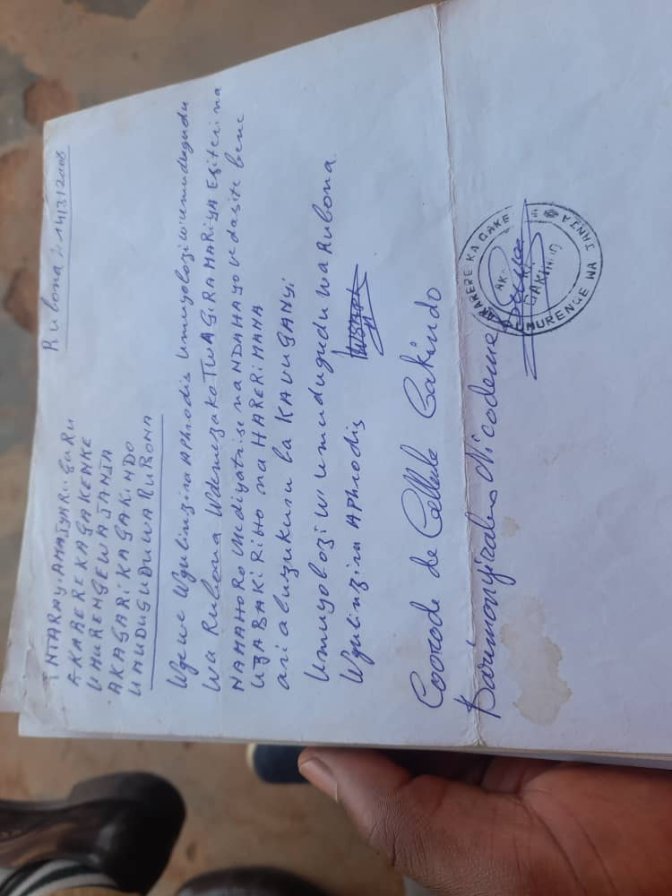 Rubona le 14/3/2008
INTARAYI AMAJYARUGURU
AKARERE KA GAKENKE
UMURENGE WA JANJA
AKAGARI KA GAKINDO
UMUDUGUDU WA RUBONA
Njyewe Aphrodis Umuyobozi w'umudugudu
wa Rubona Ndemezako TWAGIRAMARIYA Esiteri na
NAMAHORO na NDAHAYO Vedasite bene
UZABAKIRIHO na HARERIMANA
ari abuzukuru ba KAVUGANYI
Umuyobozi w'Umudugudu wa Rubona
Aphrodis
Coordo de Cellule Gakindo
Nicodeme
AKARERE KA GAKE
UMURENGE WA JANJA
GAKINDO